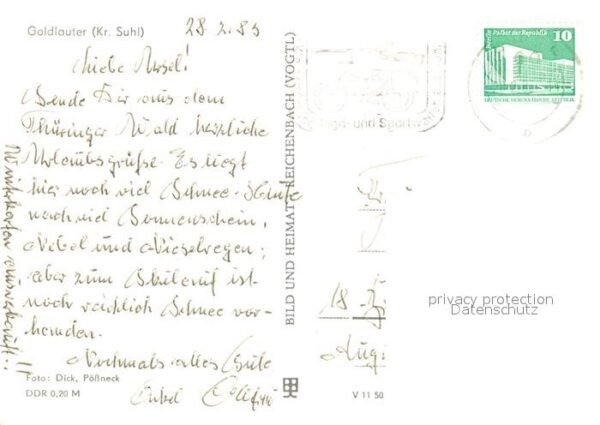 Goldlauter (Kr. Suhl)
28 2. 83
Liebe Ursel!
Sende Dir aus dem
Thüringer Wald herzliche
Urlaubsgrüße. Es liegt
hier noch viel Schnee. Heute
nach viel Sonnenschein,
Nebel und Nieselregen;
aber zum Skilauf ist
noch reichlich Schnee vor-
handen.
Nochmals alles Gute
Onkel
Winterkarten ausverkauft!!
Foto: Dick, Pößneck
DDR 0,20 M
BILD UND HEIMAT REICHENBACH (VOGTL)
V 11 50
Jagd- und Sportw
Berlin, Palast der Republik
10
DEUTSCHE DEMOKRATISCHE REPUBLIK
Fr.
18
privacy protection
Datenschutz